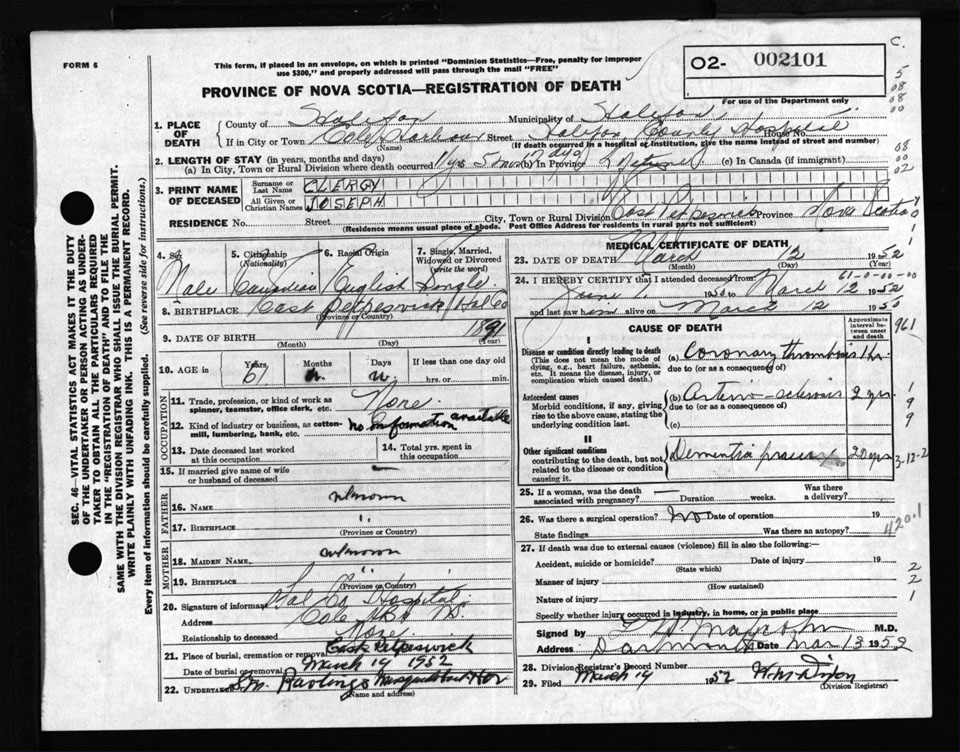 FORM 6
This form, if placed in an envelope, on which is printed "Dominion Statistics—Free, penalty for improper
use $300," and properly addressed will pass through the mail "FREE"
O2- 002101
For use of the Department only
PROVINCE OF NOVA SCOTIA—REGISTRATION OF DEATH
1. PLACE OF DEATH
County of Halifax Municipality of Halifax
If in City or Town Cole Harbour Street Halifax County Hospital House No.
(Name) (If death occurred in a hospital or institution, give the name instead of street and number)
2. LENGTH OF STAY (in years, months and days)
(a) In City, Town or Rural Division where death occurred 11 yrs 5 mos (b) In Province (c) In Canada (if immigrant)
3. PRINT NAME OF DECEASED
Surname or Last Name CLERGY
All Given or Christian Names JOSEPH
RESIDENCE No. Street City, Town or Rural Division East Petpeswick Province Nova Scotia
(Residence means usual place of abode. Post Office Address for residents in rural parts not sufficient)
4. Sex Male
5. Citizenship (Nationality) Canadian
6. Racial Origin English
7. Single, Married, Widowed or Divorced (write the word) Single
8. BIRTHPLACE East Petpeswick, Hal Co
(Province or Country)
9. DATE OF BIRTH 1891
(Month) (Day) (Year)
10. AGE in Years 61 Months Days If less than one day old
hrs. or min.
OCCUPATION
11. Trade, profession, or kind of work as spinner, teamster, office clerk, etc. None
12. Kind of industry or business, as cotton-mill, lumbering, bank, etc. no information available
13. Date deceased last worked at this occupation
14. Total yrs. spent in this occupation
15. If married give name of wife or husband of deceased —
FATHER
16. Name unknown
17. Birthplace "
(Province or Country)
MOTHER
18. Maiden Name unknown
19. Birthplace "
(Province or Country)
20. Signature of informant Hal Co Hospital
Address Cole Hbr NS
Relationship to deceased None
21. Place of burial, cremation or removal East Petpeswick
Date of burial or removal March 14 1952
22. Undertaker S.M. Rawlings Musquodoboit Hbr
(Name and address)
MEDICAL CERTIFICATE OF DEATH
23. DATE OF DEATH March 12 1952
(Month) (Day)
61-0-00-00
24. I HEREBY CERTIFY that I attended deceased from
June 1 1950 to March 12 1952
and last saw him alive on March 12 19
CAUSE OF DEATH
Approximate interval between onset and death
I
Disease or condition directly leading to death
(This does not mean the mode of dying, e.g., heart failure, asthenia, etc. It means the disease, injury, or complication which caused death.
(a) Coronary thrombosis 1 hr.
due to (or as a consequence of)
Antecedent causes
Morbid conditions, if any, giving rise to the above cause, stating the underlying condition last.
(b) Arterio-sclerosis 2 yrs
due to (or as a consequence of)
(c)
II
Other significant conditions
contributing to the death, but not related to the disease or condition causing it.
Dementia praecox 20 yrs
25. If a woman, was the death associated with pregnancy? — Duration weeks. Was there a delivery?
26. Was there a surgical operation? No Date of operation 19
State findings Was there an autopsy?
27. If death was due to external causes (violence) fill in also the following:
Accident, suicide or homicide? Date of injury 19
(State which)
Manner of injury
(How sustained)
Nature of injury
Specify whether injury occurred in industry, in home, or in public place
Signed by M.D.
Address Dartmouth Date Mar 13 1952
28. Division Registrar's Record Number
29. Filed March 14 1952 W.M. Dixon
(Division Registrar)
SEC. 46—VITAL STATISTICS ACT MAKES IT THE DUTY
OF THE UNDERTAKER OR PERSON ACTING AS UNDERTAKER
TO OBTAIN ALL THE PARTICULARS REQUIRED
IN THE "REGISTRATION OF DEATH" AND TO FILE THE
SAME WITH THE DIVISION REGISTRAR WHO SHALL ISSUE THE BURIAL PERMIT.
WRITE PLAINLY WITH UNFADING INK. THIS IS A PERMANENT RECORD.
Every item of information should be carefully supplied. (See reverse side for instructions.)
C.
5
08
08
00
08
00
02
961
1
9
9
3-12-2
420.1
2
2
1